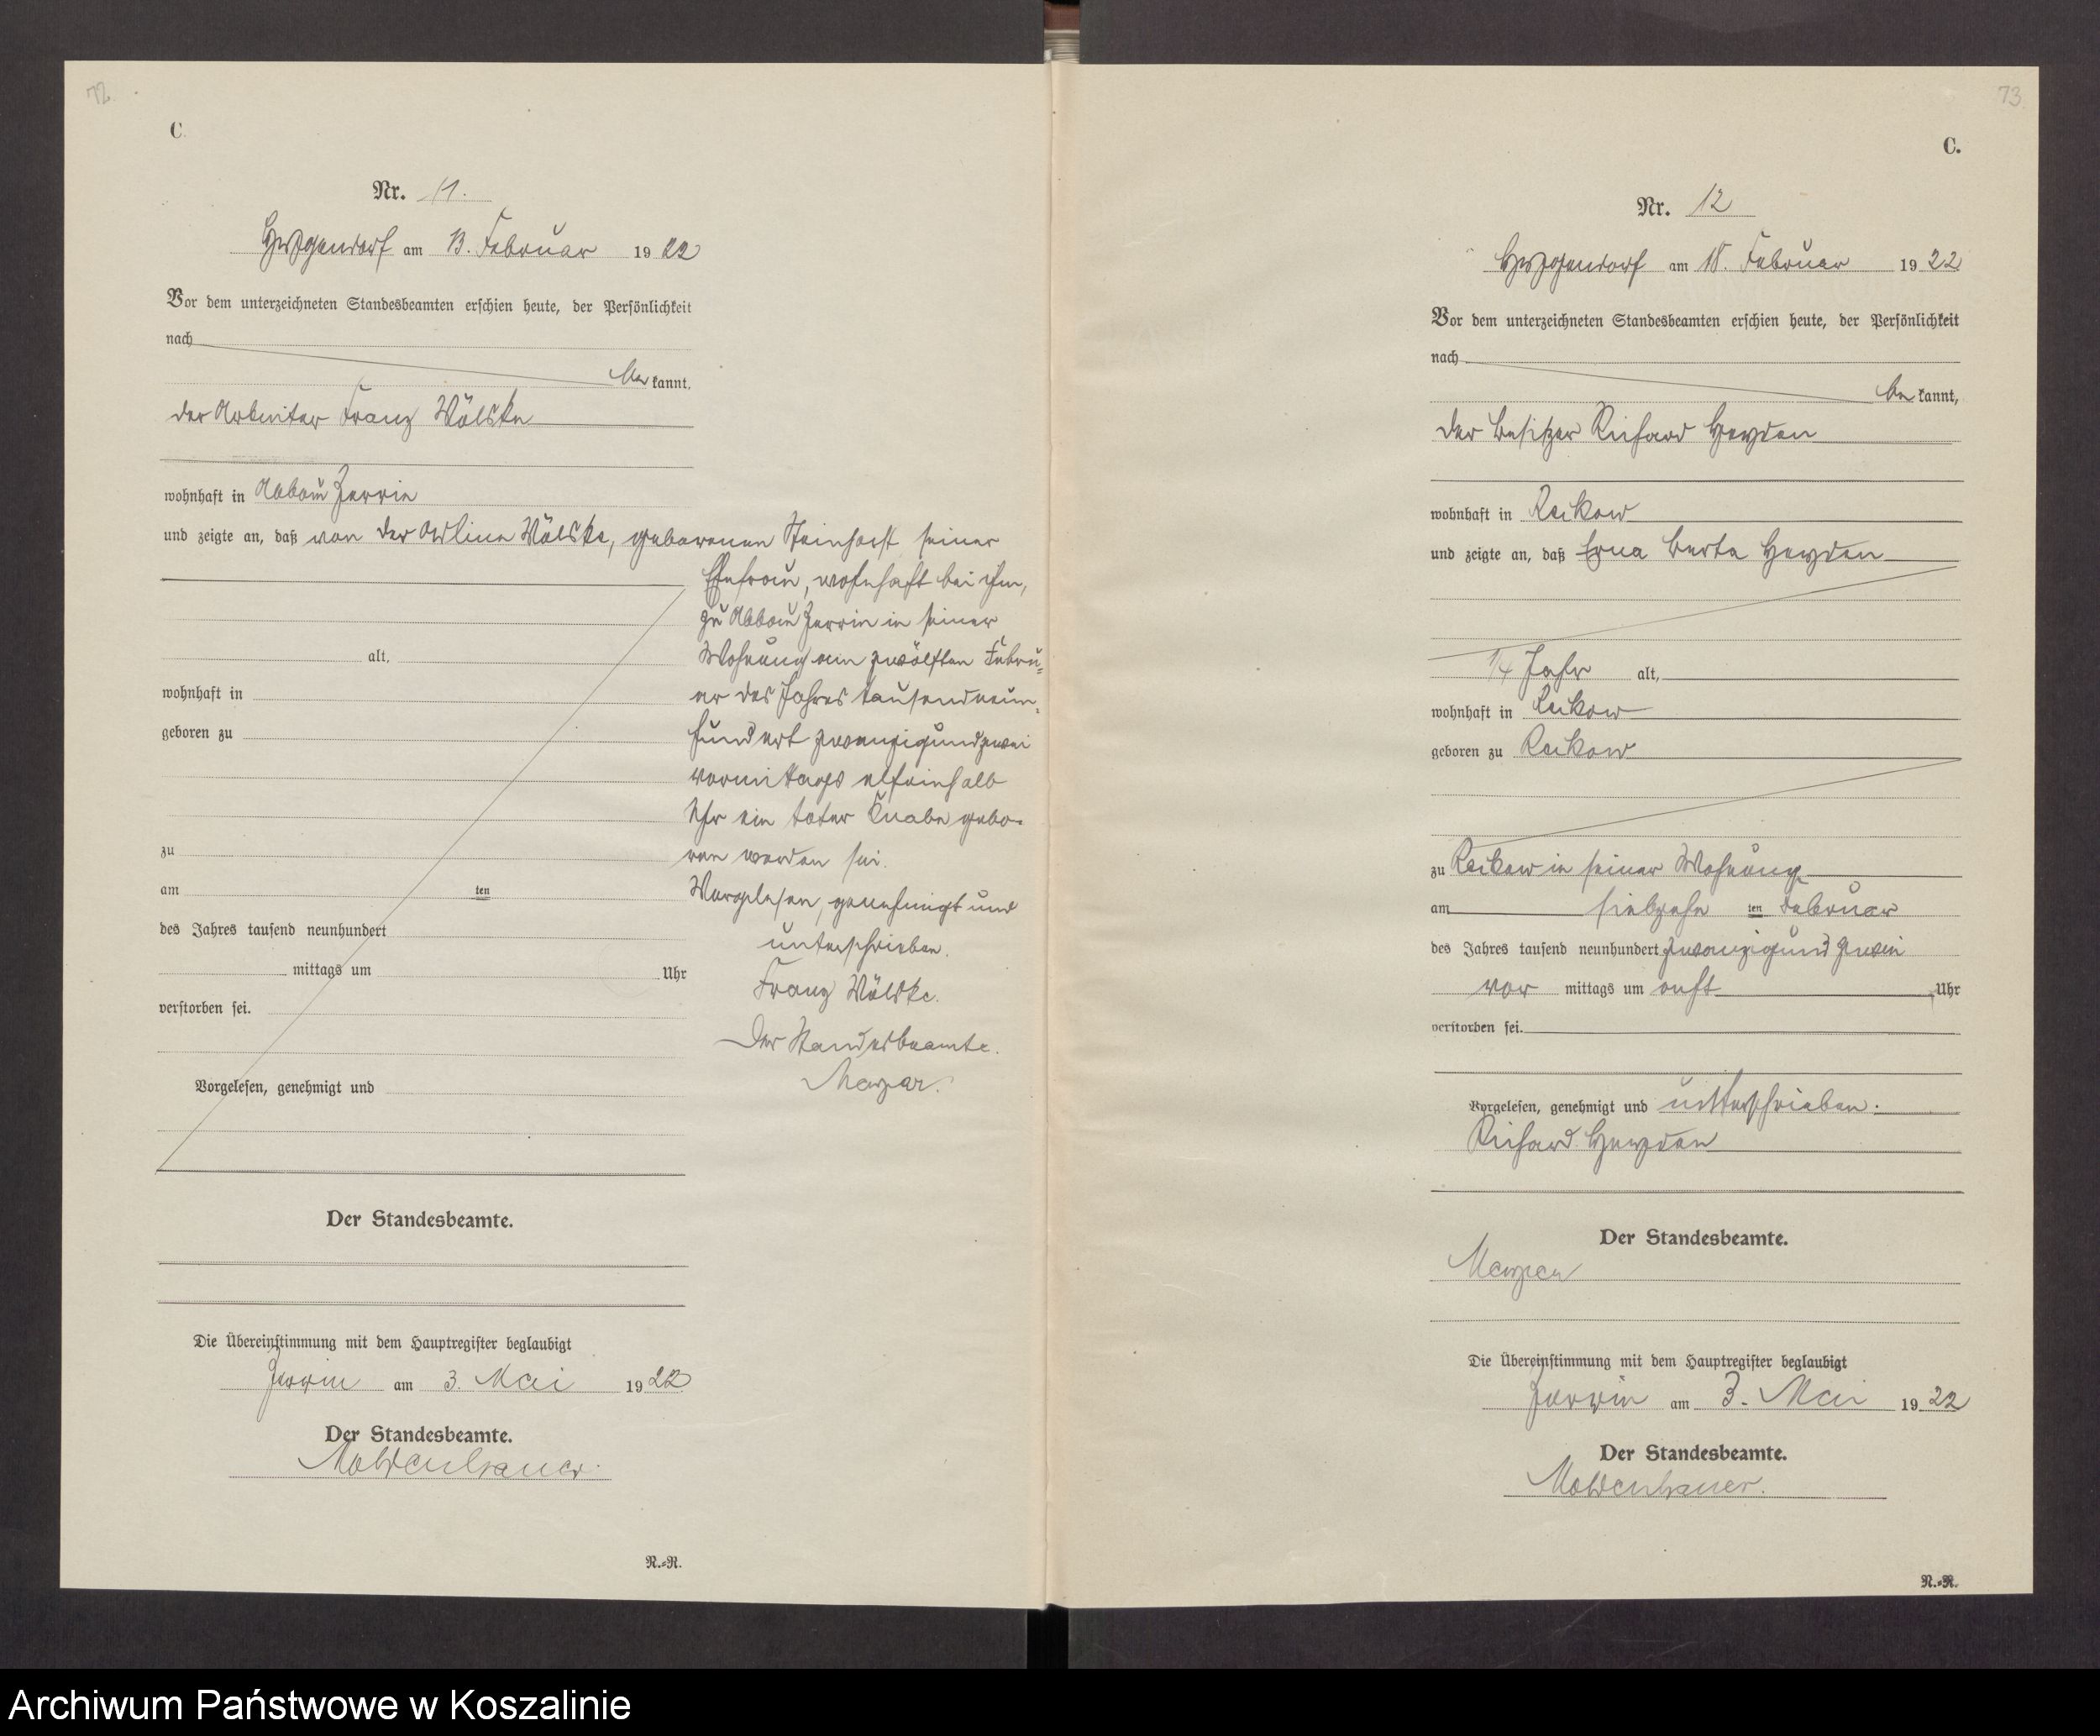 72.
C.
Nr. 11.
am 13. Februar 1922
Vor dem unterzeichneten Standesbeamten erschien heute, der Persönlichkeit
nach
kannt,
der Arbeiter Franz Völske
wohnhaft in Abbau Zerrin
und zeigte an, daß von der Völske, geborenen Steinhorst seiner
Ehefrau, wohnhaft bei ihm,
zu Abbau Zerrin in seiner
Wohnung am zwölften Febru-
ar des Jahres tausendneun-
hundert zwanzigundzwei
vormittags elfeinhalb
Uhr ein toter Knabe gebo-
ren worden sei.
Vorgelesen, genehmigt und
unterschrieben.
Franz Völske.
Der Standesbeamte.
alt,
wohnhaft in
geboren zu
zu
am ten
des Jahres tausend neunhundert
mittags um Uhr
verstorben sei.
Vorgelesen, genehmigt und
Der Standesbeamte.
Die Übereinstimmung mit dem Hauptregister beglaubigt
Zerrin am 3. Mai 1922
Der Standesbeamte.
Moldenhauer.
R.=R.
73
C.
Nr. 12
am 18. Februar 1922
Vor dem unterzeichneten Standesbeamten erschien heute, der Persönlichkeit
nach
be kannt,
der Besitzer Richard Heyden
wohnhaft in Reckow
und zeigte an, daß Erna Berta Heyden
1/4 Jahr alt,
wohnhaft in Reckow
geboren zu Reckow
zu Reckow in seiner Wohnung
am siebzehn ten Februar
des Jahres tausend neunhundert zwanzigund zwei
vor mittags um acht Uhr
verstorben sei.
Vorgelesen, genehmigt und unterschrieben.
Richard Heyden
Der Standesbeamte.
Die Übereinstimmung mit dem Hauptregister beglaubigt
Zerrin am 3. Mai 1922
Der Standesbeamte.
Moldenhauer.
R.=R.
Archiwum Państwowe w Koszalinie